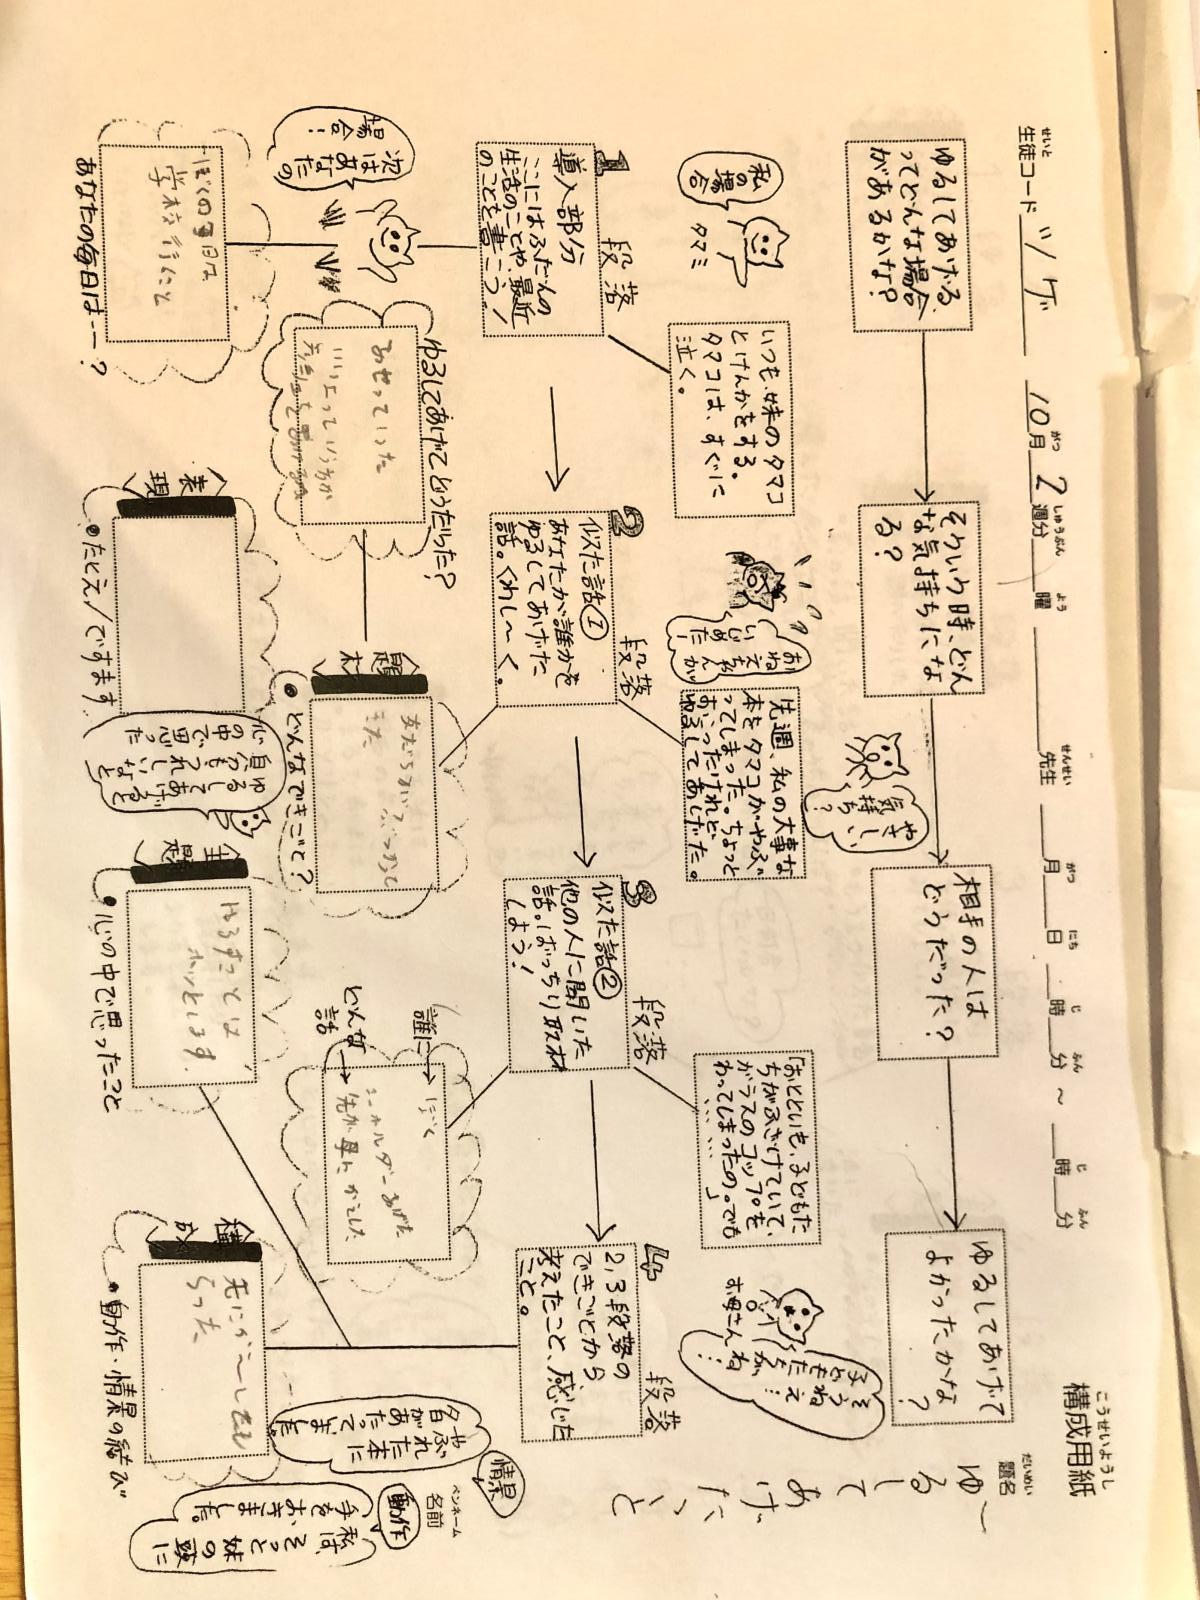 構成用紙
こうせいようし
生徒コード ツゲ 10月2週分 曜 先生 月 日 時 分 ~ 時 分
せいと がつ しゅうぶん よう せんせい がつ にち じ ふん じ ふん
題名
だいめい
ゆるして
あげた
こと
ペンネーム
名前
ゆるしてあげる、
ってどんな場合
があるかな?
そういう時、どん
な気持ちにな
る?
やさしい
気持ち?
相手の人は
どうだった?
ゆるしてあげて
よかったかな?
私の
場合
タマミ
いつも、妹のタマコ
とけんかをする。
タマコは、すぐに
泣く。
おねえちゃんが
いじめた!
先週、私の大事な
本をタマコがやぶ
ってしまった。ちょっと
おこったけれど
ゆるしてあげた。
「おとといも、子どもた
ちがふざけていて、
ガラスのコップを
わってしまったの。でも
......」
お母さん
そうねえ
子どもたちが
ね!
1段落
導入部分
ここにはふだんの
生活のことや、最近
のことを書こう!
2段落
似た話①
あなたが誰かを
ゆるしてあげた
話。くわし〜く。
3段落
似た話②
他の人に聞いた
話。ばっちり取材
しよう!
4段落
2,3段落の
できごとから
考えたこと、感じた
こと。
次は
あなたの
場合!
ぼくの毎日は
学校行くこと
あなたの毎日は—?
ゆるしてあげてどうだった?
あせっていった
題材
・どんなできごと?
表現
・たとえ/ですます
自分も
うれしいなと
心の中で思った
主題
ゆるすことは、
ホッとします。
・心の中で思ったこと
誰に→
どんな話→
構成
・動作・情景の結び
情景
やぶれた本に
夕日が
あたっていました。
動作
私は、そっと妹の頭に
手をおきました。